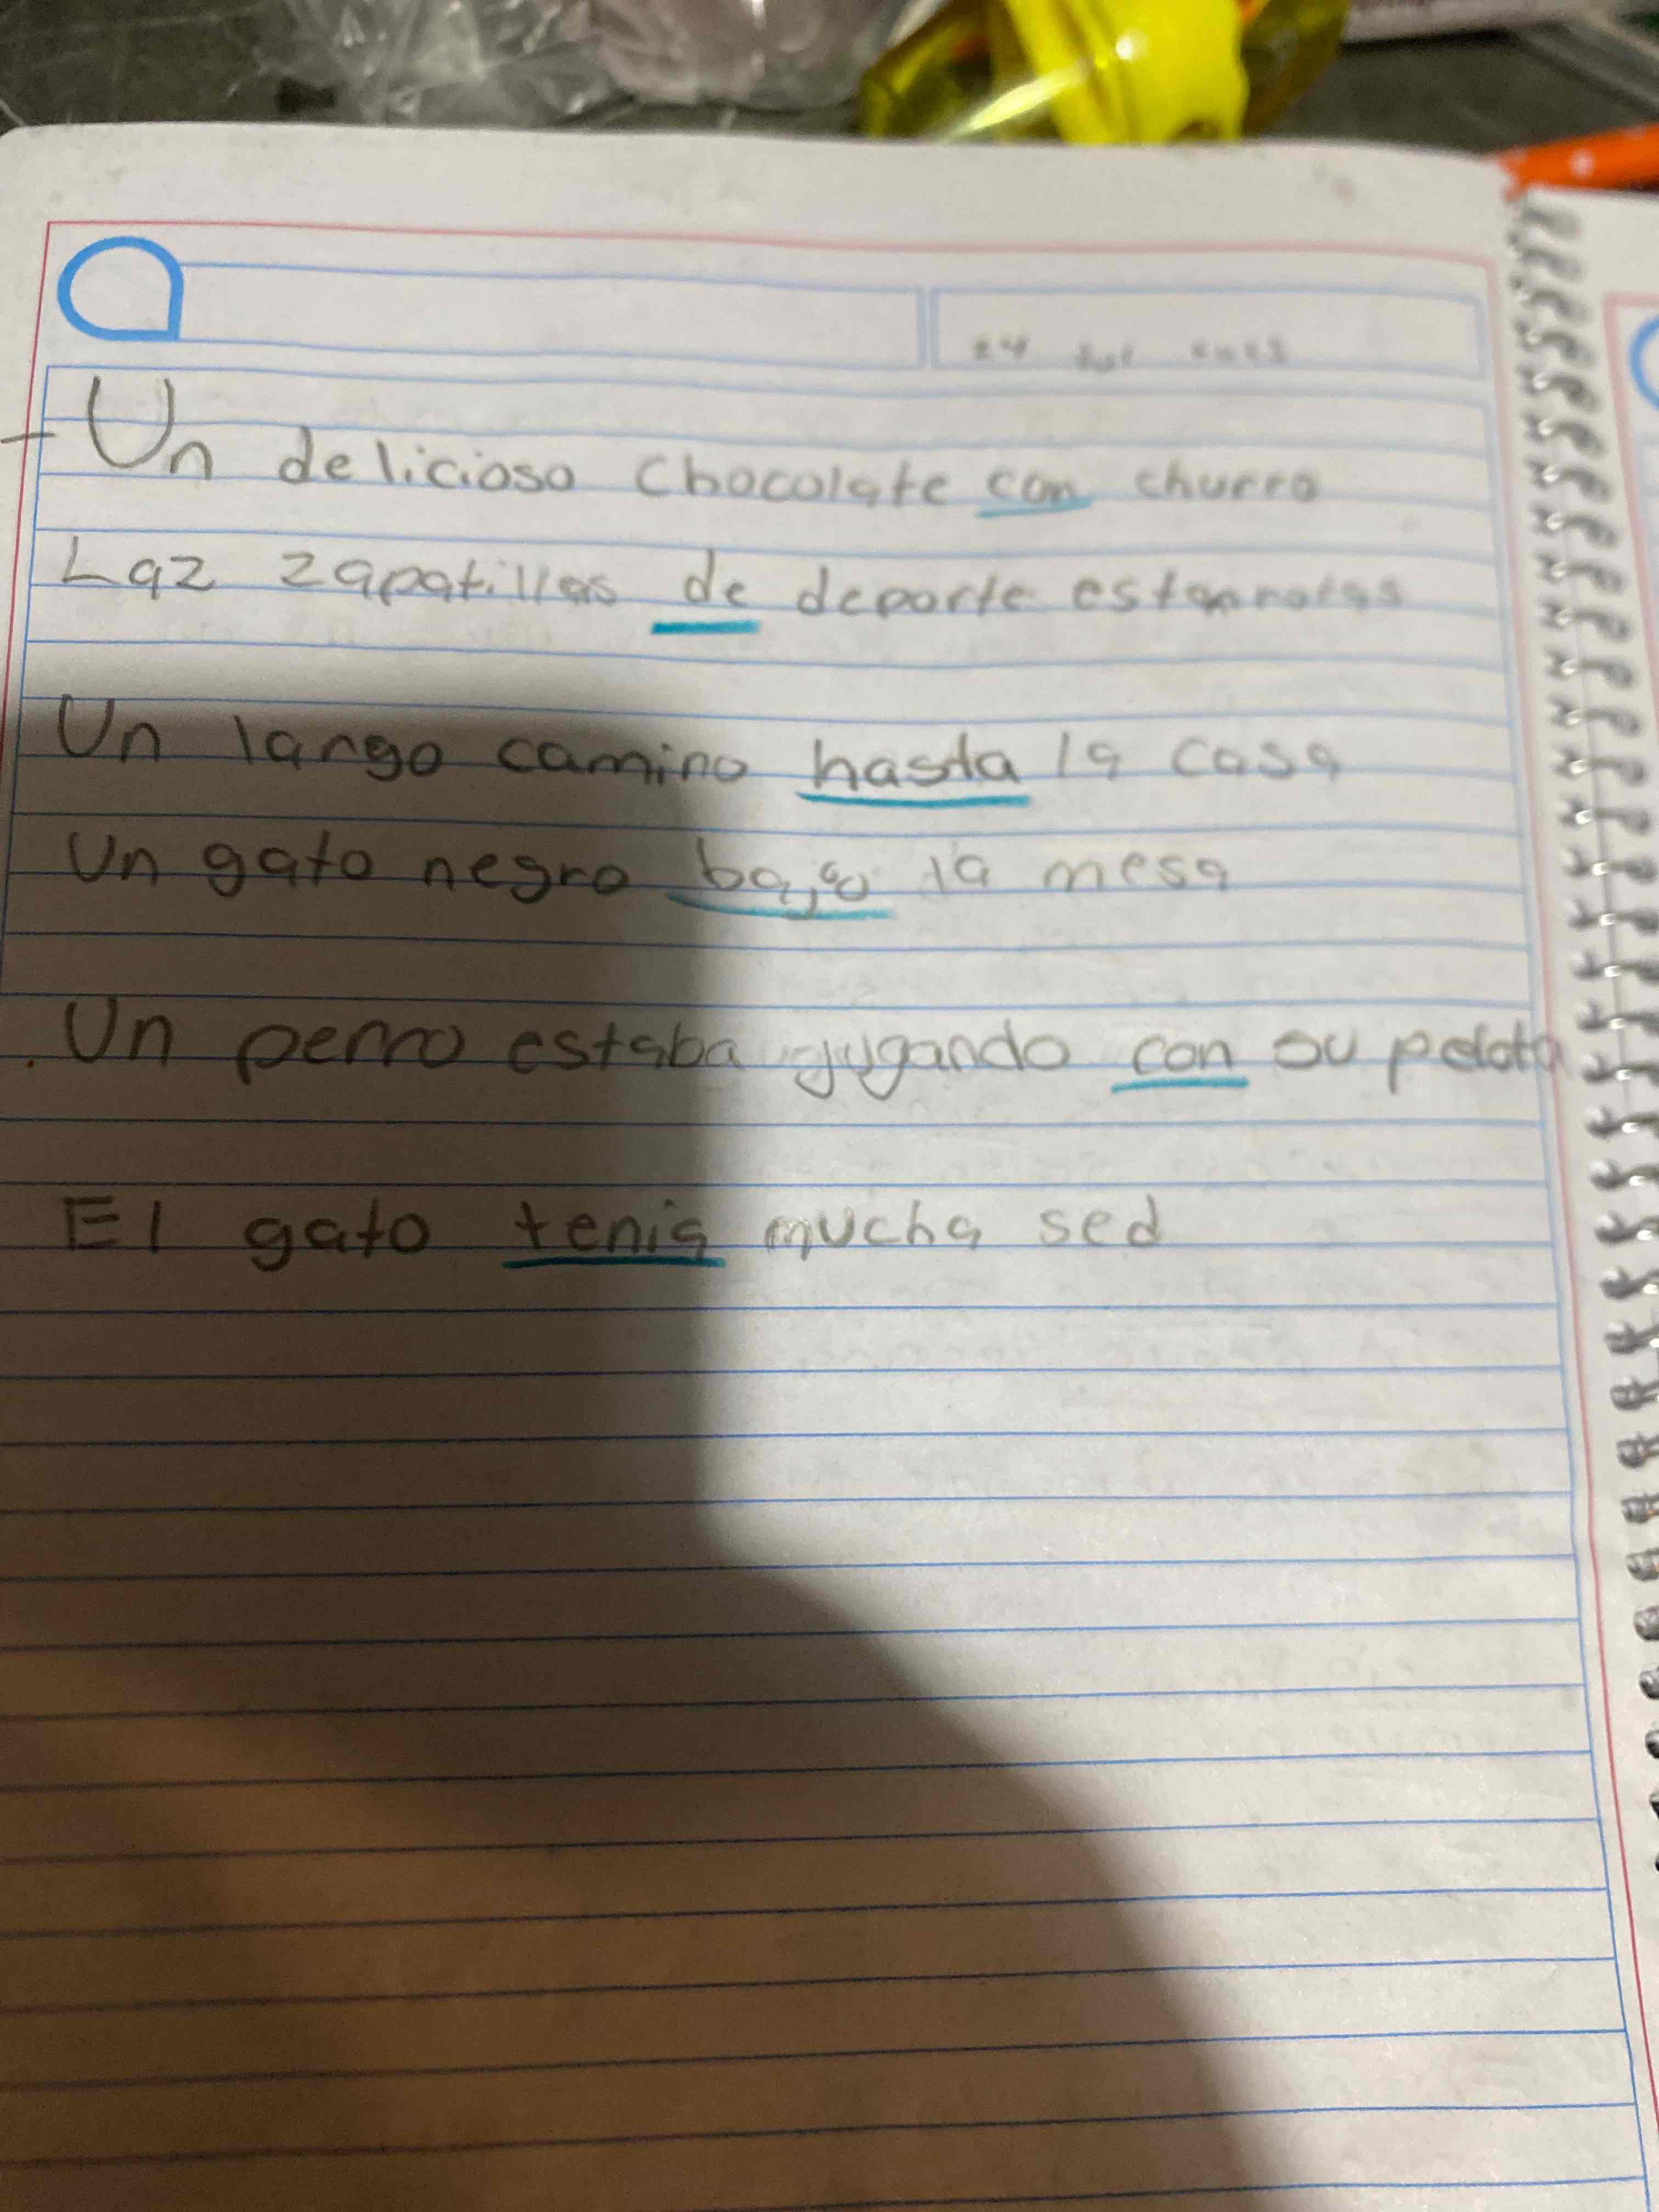 - Un delicioso chocolate con churro
Laz zapatillas de deporte estan rotas
Un largo camino hasta la casa
Un gato negro bajo la mesa
. Un perro estaba jugando con su pelota
El gato tenia mucha sed